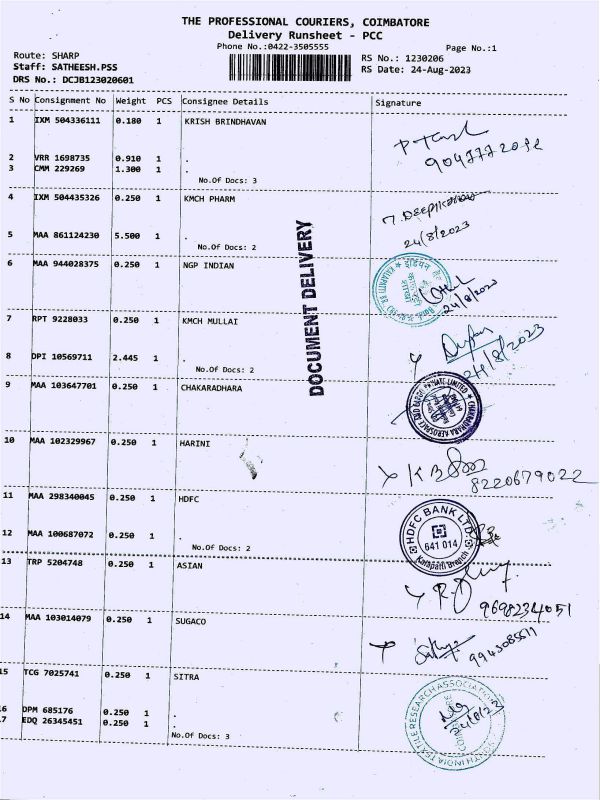 THE PROFESSIONAL COURIERS, COIMBATORE
Delivery Runsheet - PCC
Phone No.:0422-3505555
Page No.:1
Route: SHARP
Staff: SATHEESH.PSS
DRS No.: DCJB123020601
RS No.: 1230206
RS Date: 24-Aug-2023
S No Consignment No Weight PCS Consignee Details Signature
1 IXM 504336111 0.180 1 KRISH BRINDHAVAN
2 VRR 1698735 0.910 1 .
3 CMM 229269 1.300 1 .
No.Of Docs: 3
4 IXM 504435326 0.250 1 KMCH PHARM
24/8/2023
5 MAA 861124230 5.500 1 .
No.Of Docs: 2
DOCUMENT DELIVERY
6 MAA 944028375 0.250 1 NGP INDIAN
24/8/2023
7 RPT 9228033 0.250 1 KMCH MULLAI
24/8/2023
8 DPI 10569711 2.445 1 .
No.Of Docs: 2
9 MAA 103647701 0.250 1 CHAKARADHARA
10 MAA 102329967 0.250 1 HARINI
8220679022
11 MAA 298340045 0.250 1 HDFC
HDFC BANK LTD
641 014
Kalapatti Branch
12 MAA 100687072 0.250 1 .
No.Of Docs: 2
13 TRP 5204748 0.250 1 ASIAN
9698234051
14 MAA 103014079 0.250 1 SUGACO
15 TCG 7025741 0.250 1 SITRA
SOUTH INDIA TEXTILE RESEARCH ASSOCIATION
16 DPM 685176 0.250 1 .
17 EDQ 26345451 0.250 1 .
No.Of Docs: 3